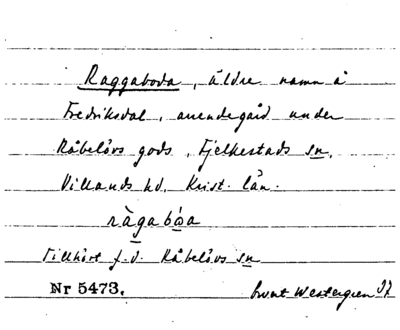 Raggaboda, äldre namn å
Fredriksdal, arrendegård under
Råbelövs gods, Fjelkestads sn,
Villands hd, Krist. län.
ràgabóa
Tillhört f.d. Råbelövs sn
Nr 5473. Bernt Westergren 37